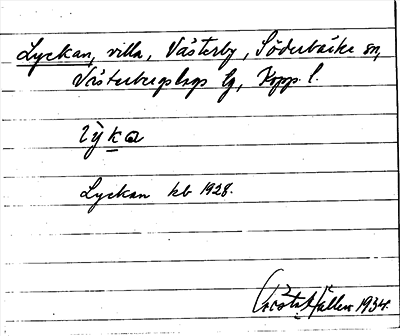 Lyckan, villa, Västerby, Söderbärke sn,
Västerbergslags bg, Kopp. l.
lỳka
Lyckan kb 1928.
Gösta Hallen 1934.